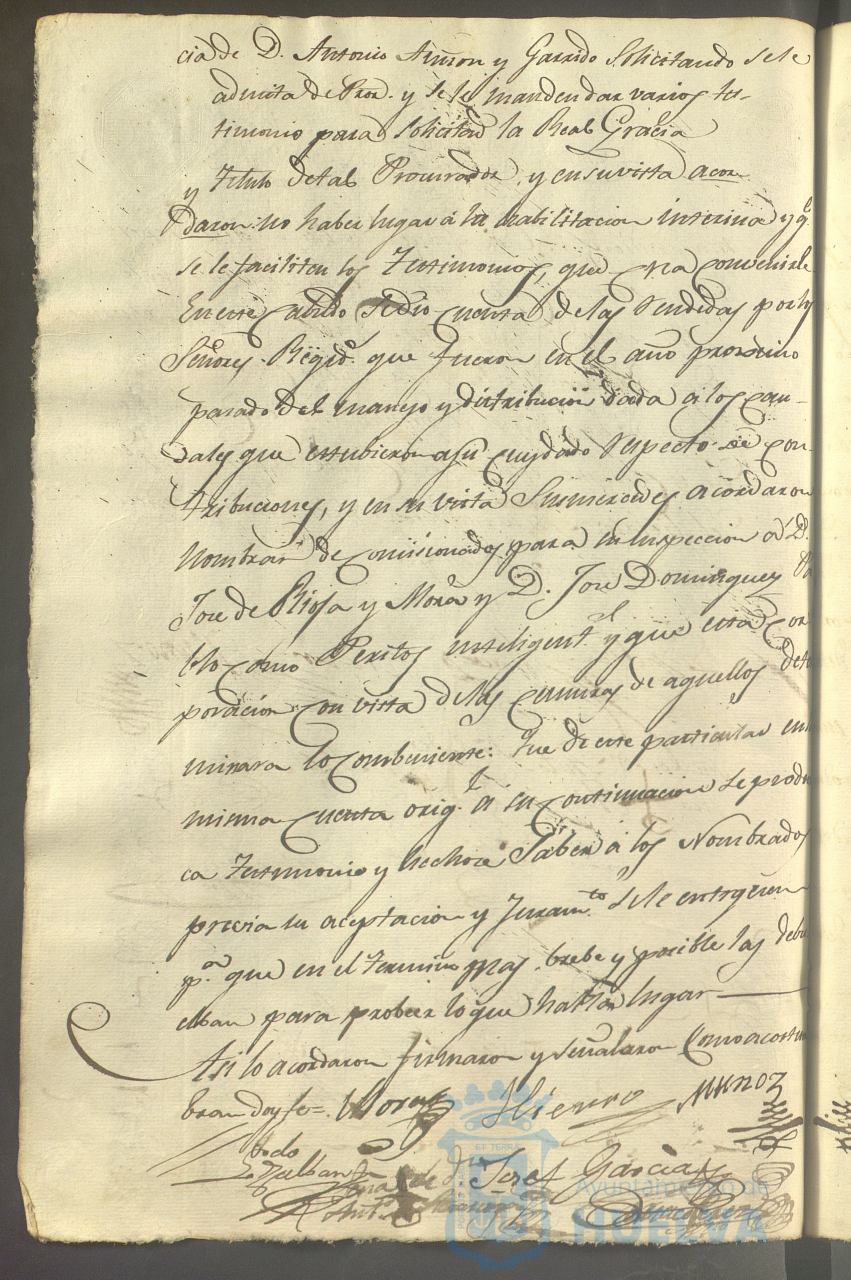 cia de D. Antonio Aunon y Garrido Solicitando se le
admita de Pror. y se le manden dar varios tes-
timonio para Solicitar la Real Gracia
y Titulo de tal Procurador, y en su vista acor
daron: no haber lugar á la habilitacion interina y q.e
se le faciliten los Testimonios, que crea Convenirle
En este Cabildo Se dio Cuenta de las Rendidas por los
Señores Regid.s que fueron en el año proximo
pasado del manejo y distribucion dada á los Cau-
dales que estubieron a su Cuydado Respecto de Con-
tribuciones, y en su vista Sus mercedes acordaron
Nombrar de Comisionados para su inspeccion á D.
Jose de Rioja y Mora y D. Jose Dominguez
como Peritos inteligent.s y que esta Cor
poracion Con vista de las Censuras de aquellos dete
minara lo Combeniente: Que de este particular en
misma Cuenta orig.l á su Continuacion se produ
ca Testimonio y hechose Saber á los Nombrados
previa su aceptacion y Juram.to Se le entreguen
p.a que en el Termino mas brebe y posible las debu
elban para probeer lo que halla lugar
Asi lo acordaron firmaron y señalaron Como acostum
bran doy fe=. Mora Hierro Muñoz
Josef Garcia
Ayuntamiento de
HUELVA